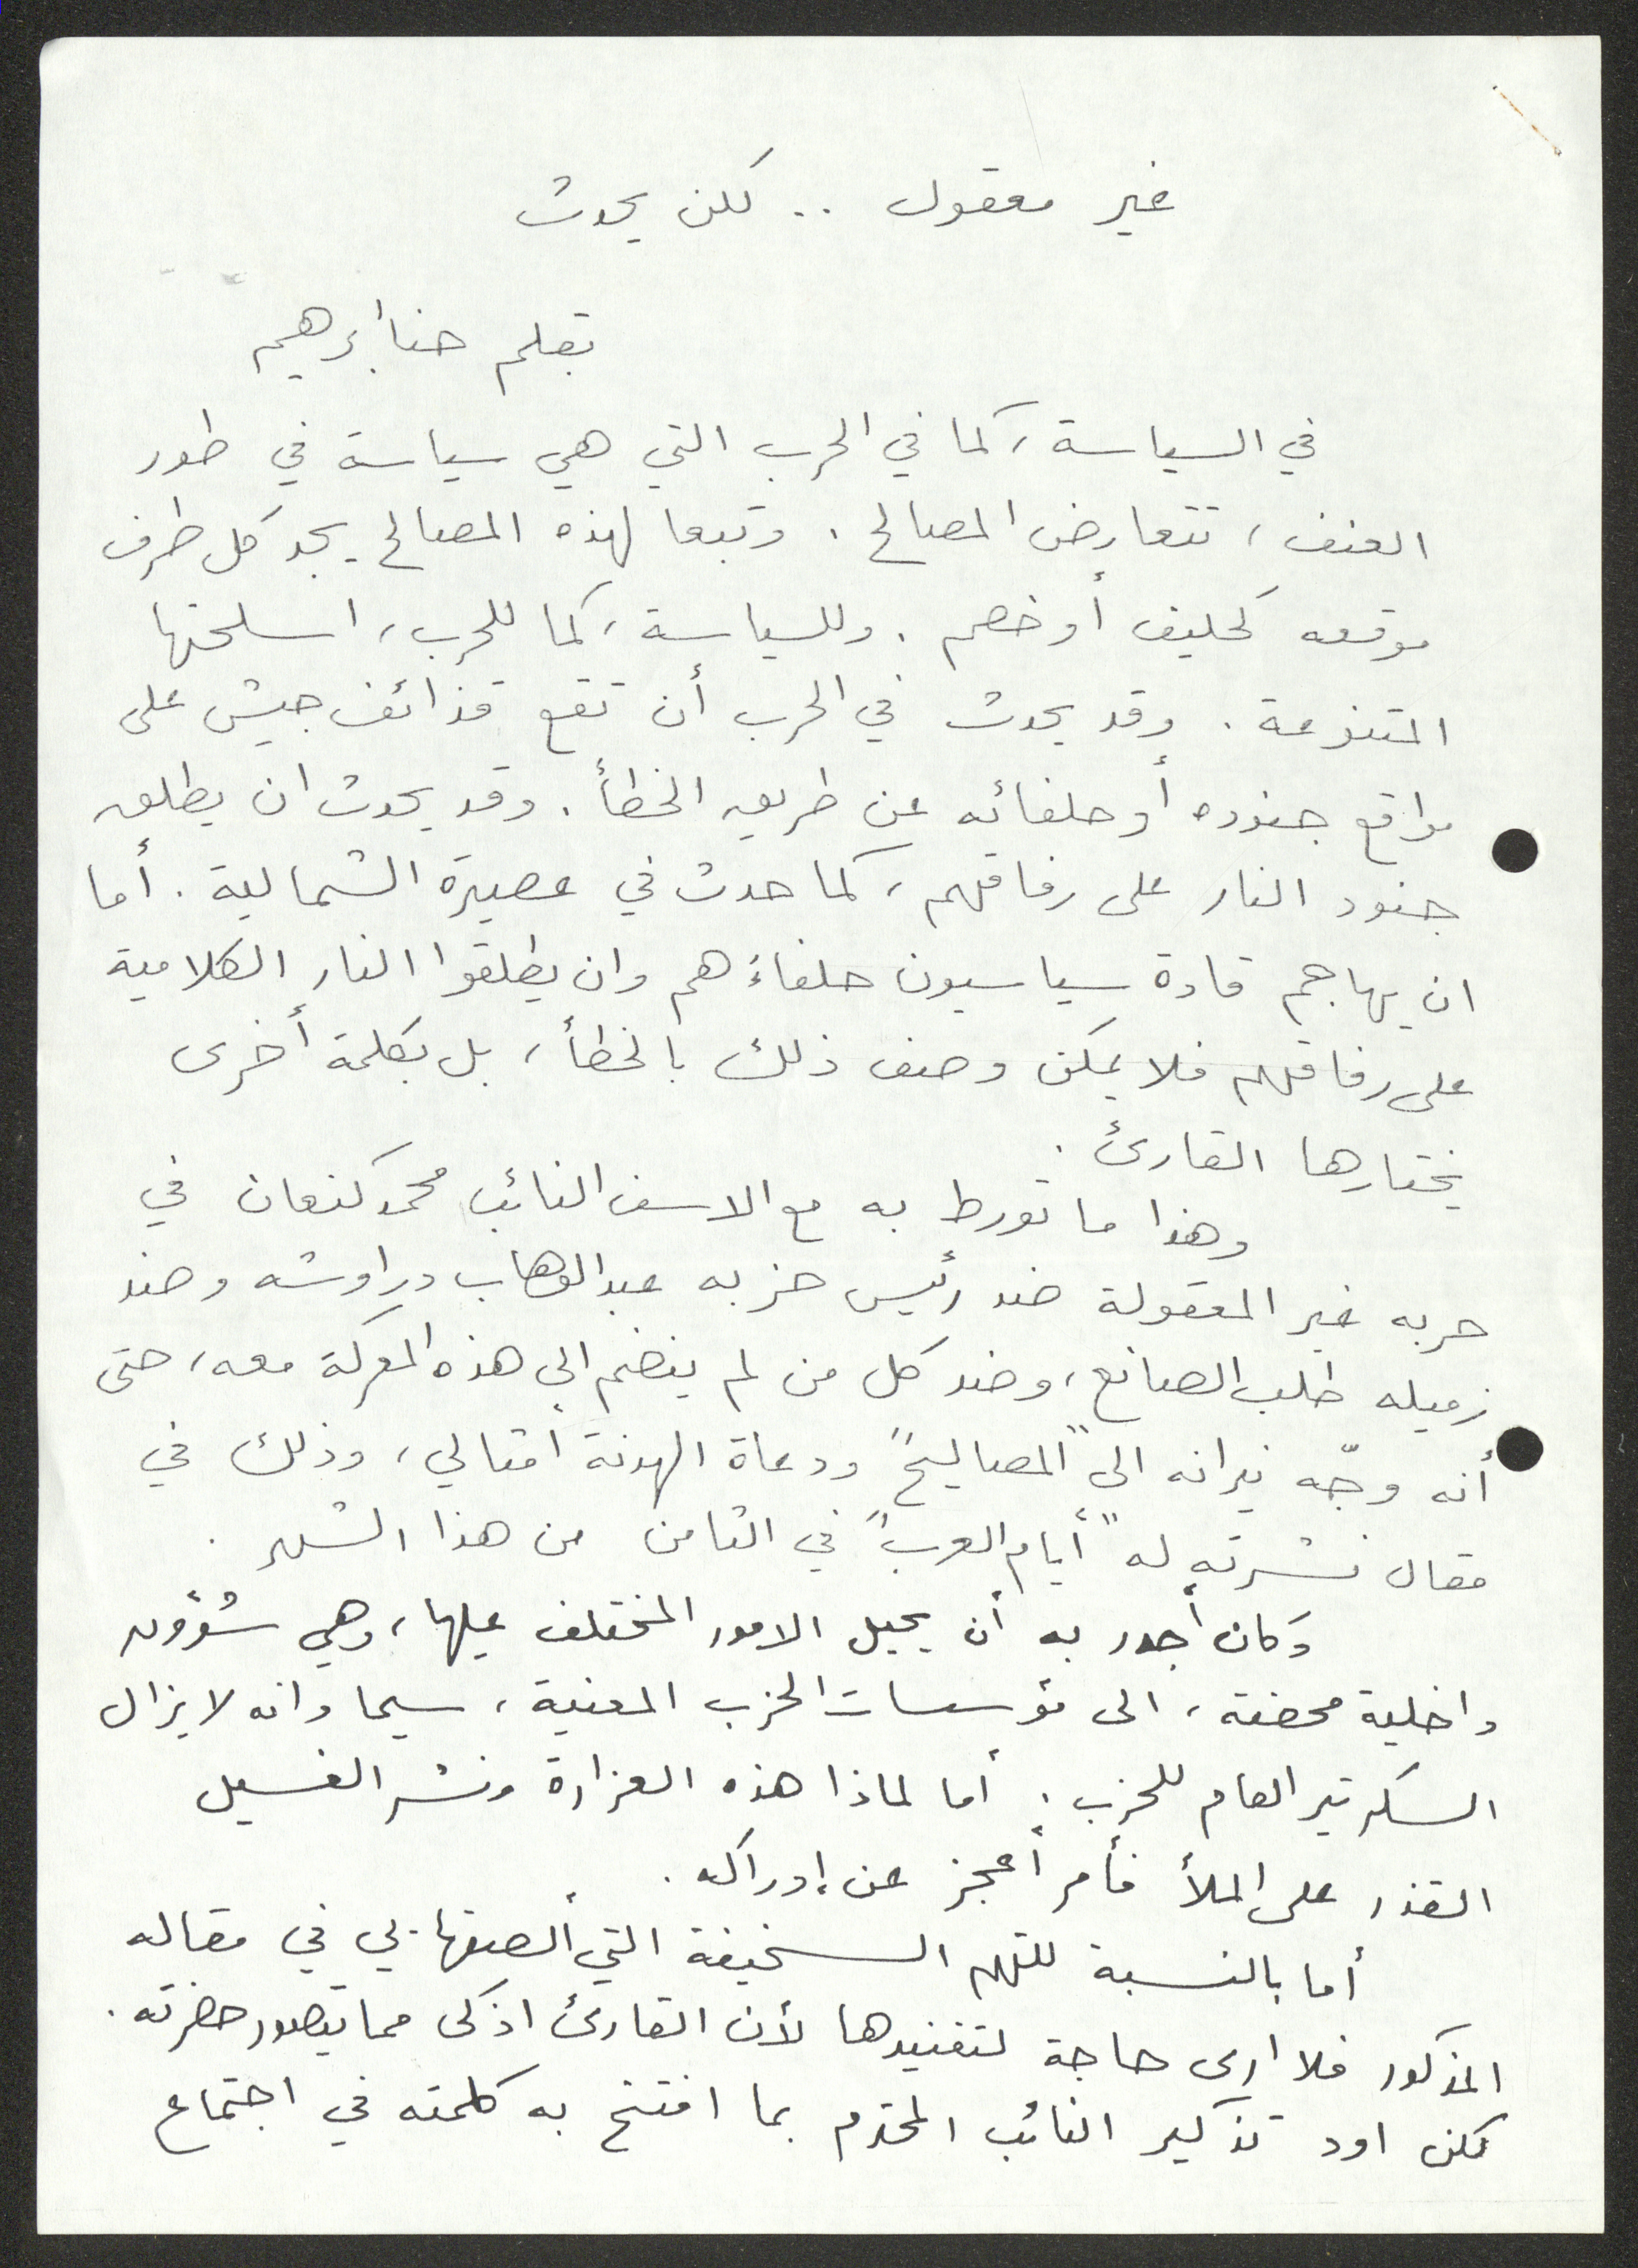 غير معقول .. لكن يحدث
بقلم حنا أبرهيم
في السياسة، كما في الحرب التي هي سياسة في طور
العنف، تتعارض المصالح. وتبعا لهذه المصالح يجد كل طرف
موقعه كحليف أو خصم. وللسياسة، كما للحرب، اسلحتها
المتنوعة. وقد يحدث في الحرب أن تقع قذائف جيش على
مواقع جنوده أو حلفائه عن طريق الخطأ. وقد يحدث ان يطلق
جنود النار على رفاقهم، كما حدث في عصيرة الشمالية. أما
ان يهاجم قادة سياسيون حلفاءهم وان يطلقوا النار الكلامية
على رفاقهم فلا يمكن وصف ذلك بالخطأ، بل بكلمة أخرى
يختارها القارئ.
وهذا ما تورط به مع الاسف النائب محمد كنعان في
حربه غير المعقولة ضد رئيس حزبه عبد الوهاب دراوشه وضد
زميله طلب الصانع، وضد كل من لم ينضم الى هذه المعركة معه، حتى
أنه وجّه نيرانه الى "المصاليح" ودعاة الهدنة أمثالي، وذلك في
مقال نشرته له "أيام العرب" في الثامن من هذا الشهر.
وكان أجدر به أن يحيل الامور المختلف عليها، وهي شؤون
داخلية محضة، الى مؤسسات الحزب المعنية، سيما وانه لا يزال
السكرتير العام للحزب. أما لماذا هذه الغزارة ونشر الغسيل
القذر على الملأ فأمر أعجز عن إدراكه.
أما بالنسبة للتهم السخيفة التي ألصقها بي في مقاله
المذكور فلا ارى حاجة لتفنيدها لأن القارئ اذكى مما يتصور حضرته.
لكن اود تذكير النائب المحترم بما افتتح به كلمته في اجتماع